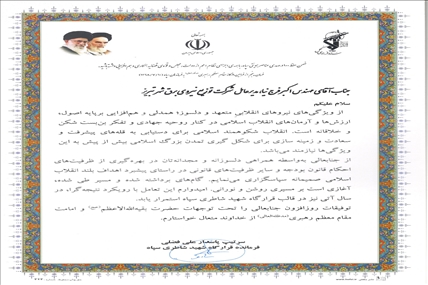 جناب آقای مهندس اکبر فرج نیا، مدیرعامل شرکت توزیع نیروی برق شهر تبریز
سلام علیکم
از ویژگی‌های نیروهای انقلابی متعهد و دلسوز؛ همدلی و هم‌افزایی برپایه اصول،
ارزش‌ها و آرمان‌های انقلاب اسلامی در کنار روحیه جهادی و تفکر بن‌بست شکن
و خلاقانه است. انقلاب شکوهمند اسلامی برای دستیابی به قله‌های پیشرفت و
سعادت و زمینه سازی برای شکل گیری تمدن بزرگ اسلامی بیش از پیش به این
ویژگی‌ها نیازمند می‌باشد.
از جنابعالی به‌واسطه همراهی دلسوزانه و مجدانه‌تان در بهره‌گیری از ظرفیت‌های
احکام قانون بودجه و سایر ظرفیت‌های قانونی در راستای پیشبرد اهداف بلند انقلاب
اسلامی صمیمانه سپاسگزاری می‌نمایم. گام‌های برداشته شده و مسیر طی شده،
آغازی است بر مسیری روشن و نورانی. امیدوارم این تعامل با رویکرد نتیجه‌گرا، در
سال آتی نیز در قالب قرارگاه شهید شاطری سپاه استمرار یابد.
توفیقات روزافزون جنابعالی را تحت توجهات حضرت بقیه‌الله‌الاعظم و امامت
مقام معظم رهبری از خداوند متعال خواستارم.
سرتیپ پاسدار علی فضلی
فرمانده قرارگاه شهید شاطری سپاه